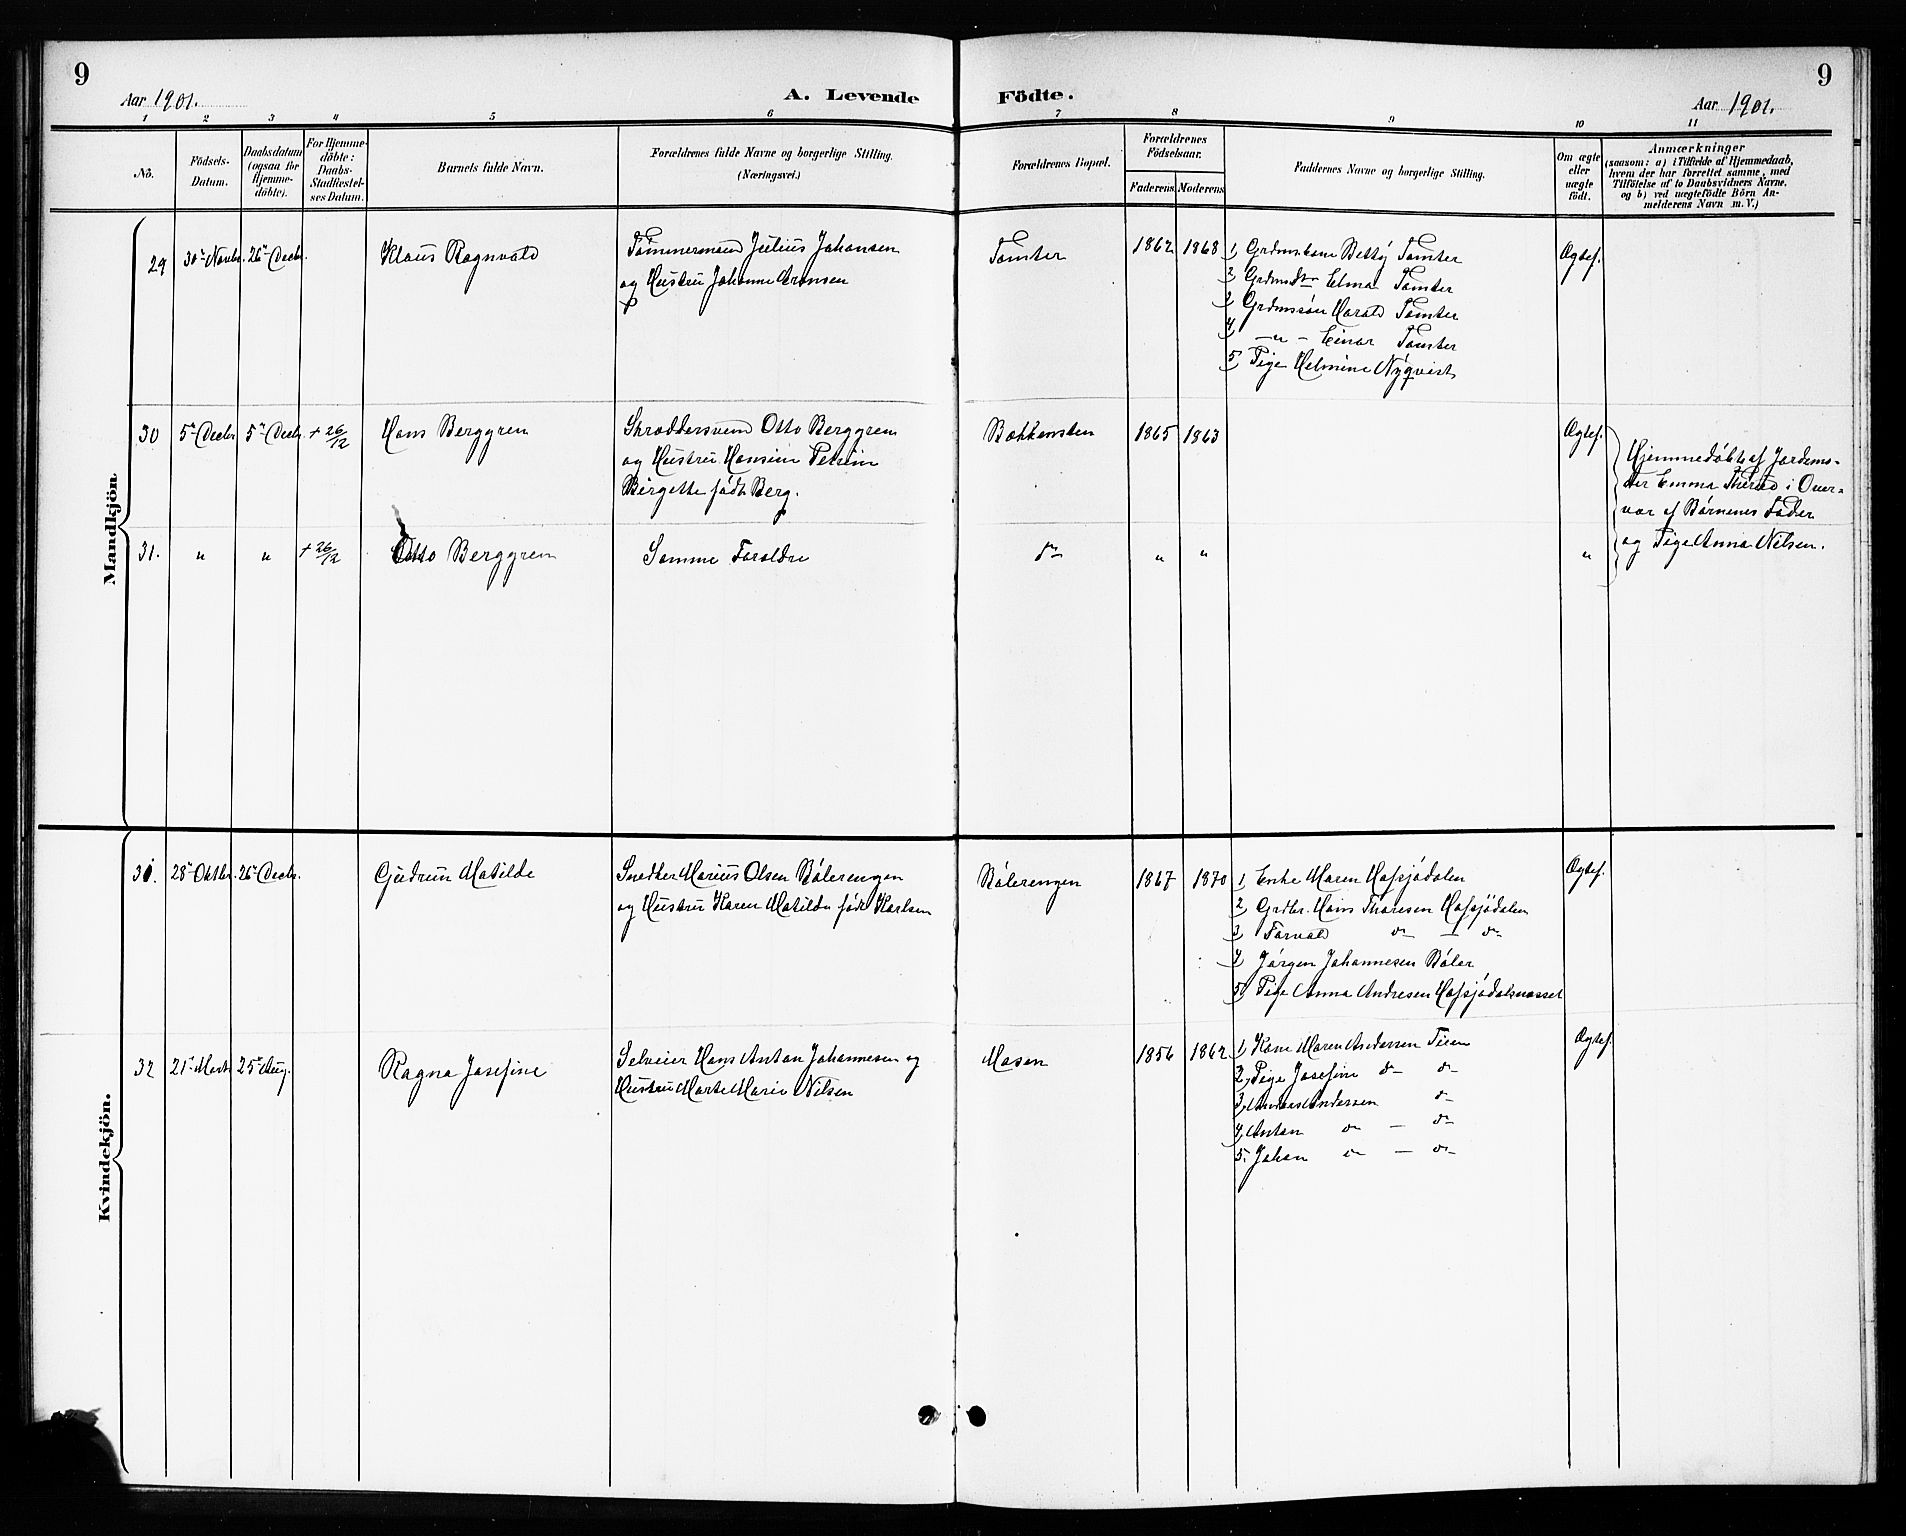 9
Aar 1901.
A. Levende
Födte.
Aar 1901.
9
1 2 3 4 5 6 7 8 9 10 11
Nō.
Födsels-
Datum.
Daabsdatum
(ogsaa for
Hjemme-
döbte).
For Hjemme-
döbte:
Daabs-
Stadfæstel-
ses Datum.
Barnets fulde Navn.
Forældrenes fulde Navne og borgerlige Stilling.
(Næringsvei.)
Forældrenes Bopæl.
Forældrenes
Födselsaar.
Faderens
Moderens
Faddernes Navne og borgerlige Stilling.
Om ægte
eller
uægte
födt.
Anmærkninger
(saasom: a) i Tilfælde af Hjemmedaab,
hvem der har forrettet samme, med
Tilföielse af to Daabsvidners Navne.
og b) ved uægtefödte Börn An-
melderens Navn m. V.)
Mandkjön.
29
30te Novbr.
26te Decbr.
Klaus Ragnvald
Tømmermand Julius Johansen
og Hustru Johanne Aronsen
Tomter
1862
1868
1, Grdmskone Betty Tomter
2, Grdmdtr Elma Tomter
3, Grdmssøn Harald Tomter
4, —"— Einar Tomter
5, Pige Helmine Nyqvist
Ægtef.
30
5te Decbr
5te Decbr.
+ 26/12
Hans Berggren
Skræddersvend Otto Berggren
og Hustru Hansine Petrine
Birgette født Berg.
Bækkensten
1865
1863
Ægtef.
Hjemmedøbt af Jordemo-
der Emma Thired i Over-
vær af Børnenes Fader
og Pige Anna Nilsen.
31.
"
"
+ 26/12
Otto Berggren
Samme Forældre
do
"
"
"
Kvindekjön.
31.
28te Oktbr.
26te Decbr.
Gudrun Matilde
Snedker Marius Olsen Bølerengen
og Hustru Karen Matilde født Karlsen
Bølerengen
1867
1870
1, Enke Maren Hafsjødalen
2, Grdbr. Hans Thoresen Hafsjødalen
3, Torvald do — do
4, Jørgen Johannesen Bøler
5, Pige Anna Andresen Hafsjødalsnesset
Ægtef.
32
21te Marts
25te Aug.
Ragna Josefine
Selveier Hans Anton Johannesen og
Hustru Marte Marie Nilsen
Mosen
1856
1862
1, Kone Maren Andersen Tien
2, Pige Josefine do do
3, Andreas Andersen do
4, Anton do — do
5. Johan do — do
Ægtef.